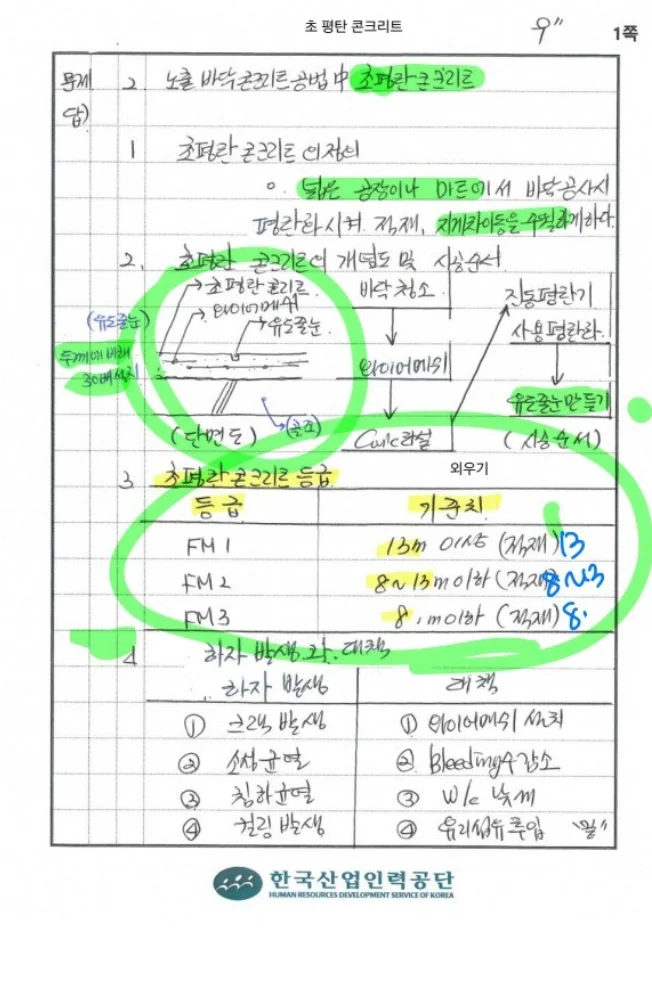 초 평탄 콘크리트
9"
1쪽
문제 2. 노출 바닥콘크리트공법中 초평탄콘크리트
답)
1 초평탄콘크리트의 정의
○. 넓은 공장이나 마트에서 바닥공사시
평탄화시켜 적재, 지게차이동을 수월하게하다.
2. 초평탄 콘크리트의 개념도 및 시공순서
초평탄콘크리트
와이어메쉬
유도줄눈
(유도줄눈)
두께에 비해
30배설치
(단면도)
(골조)
바닥청소
와이어메쉬
Con'c타설
진동평탄기
사용평탄화
유도줄눈만들기
(시공순서)
외우기
3 초평탄콘크리트 등급
등급 기준치
FM 1 13m 이상 (적재) 13
FM 2 8~13m이하 (적재) 8~13
FM 3 8.m이하 (적재) 8.
4 하자 발생과 대책
하자 발생 대책
① 크랙 발생 ① 와이어메쉬 설치
② 소성균열 ② Bleeding수감소
③ 침하균열 ③ W/c 낮게
④ 컬링발생 ④ 유리섬유투입 "끝"
한국산업인력공단
HUMAN RESOURCES DEVELOPMENT SERVICE OF KOREA